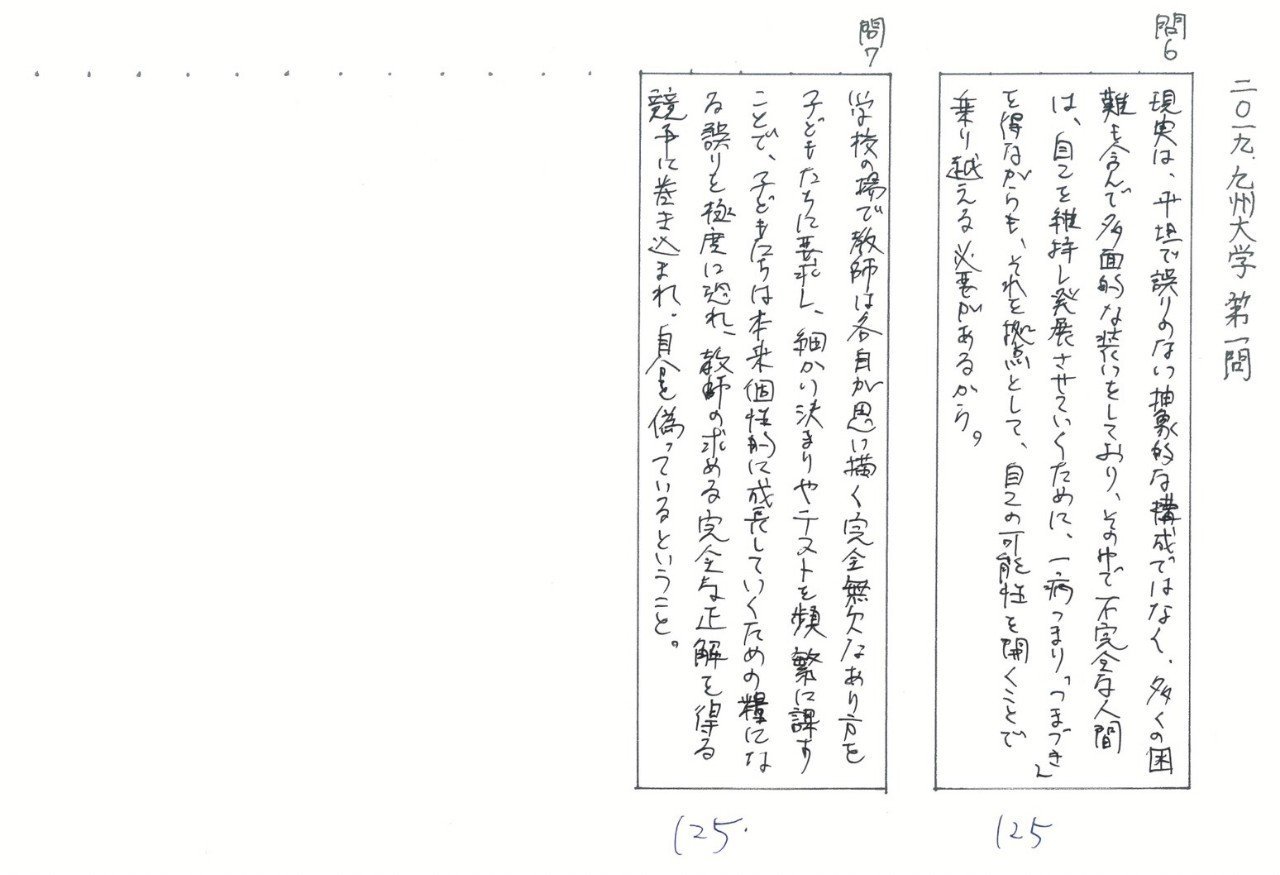 二〇一九 九州大学 第一問
問6
現実は、平坦で誤りのない抽象的な構成ではなく、多くの困
難も含んで多面的な装いをしており、その中で不完全な人間
は、自己を維持し発展させていくために、一病つまり「つまづき」
を得ながらも、それを拠点として、自己の可能性を開くことで
乗り越える必要があるから。
125
問7
学校の場で教師は各自が思い描く完全無欠なあり方を
子どもたちに要求し、細かい決まりやテストを頻繁に課す
ことで、子どもたちは本来個性的に成長していくための糧にな
る誤りを極度に恐れ、教師の求める完全な正解を得る
競争に巻き込まれ、自分を偽っているということ。
125.